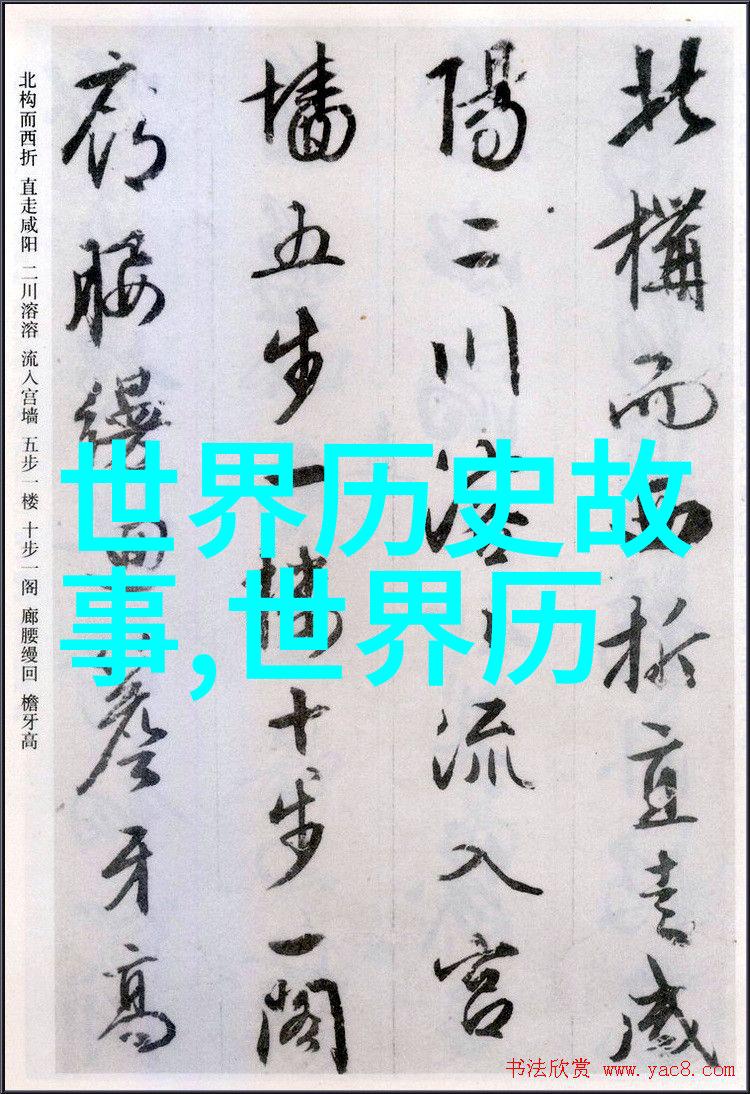 北構而西折直走咸
陽二川溶〻流入宮
墻五步一樓十步一閣
廊腰縵回簷牙高
北构而西折 直走咸阳 二川溶溶 流入宫墙 五步一楼 十步一阁 廊腰缦回 檐牙高
世界历史故
事,世界历
书法欣赏 www.yac8.com